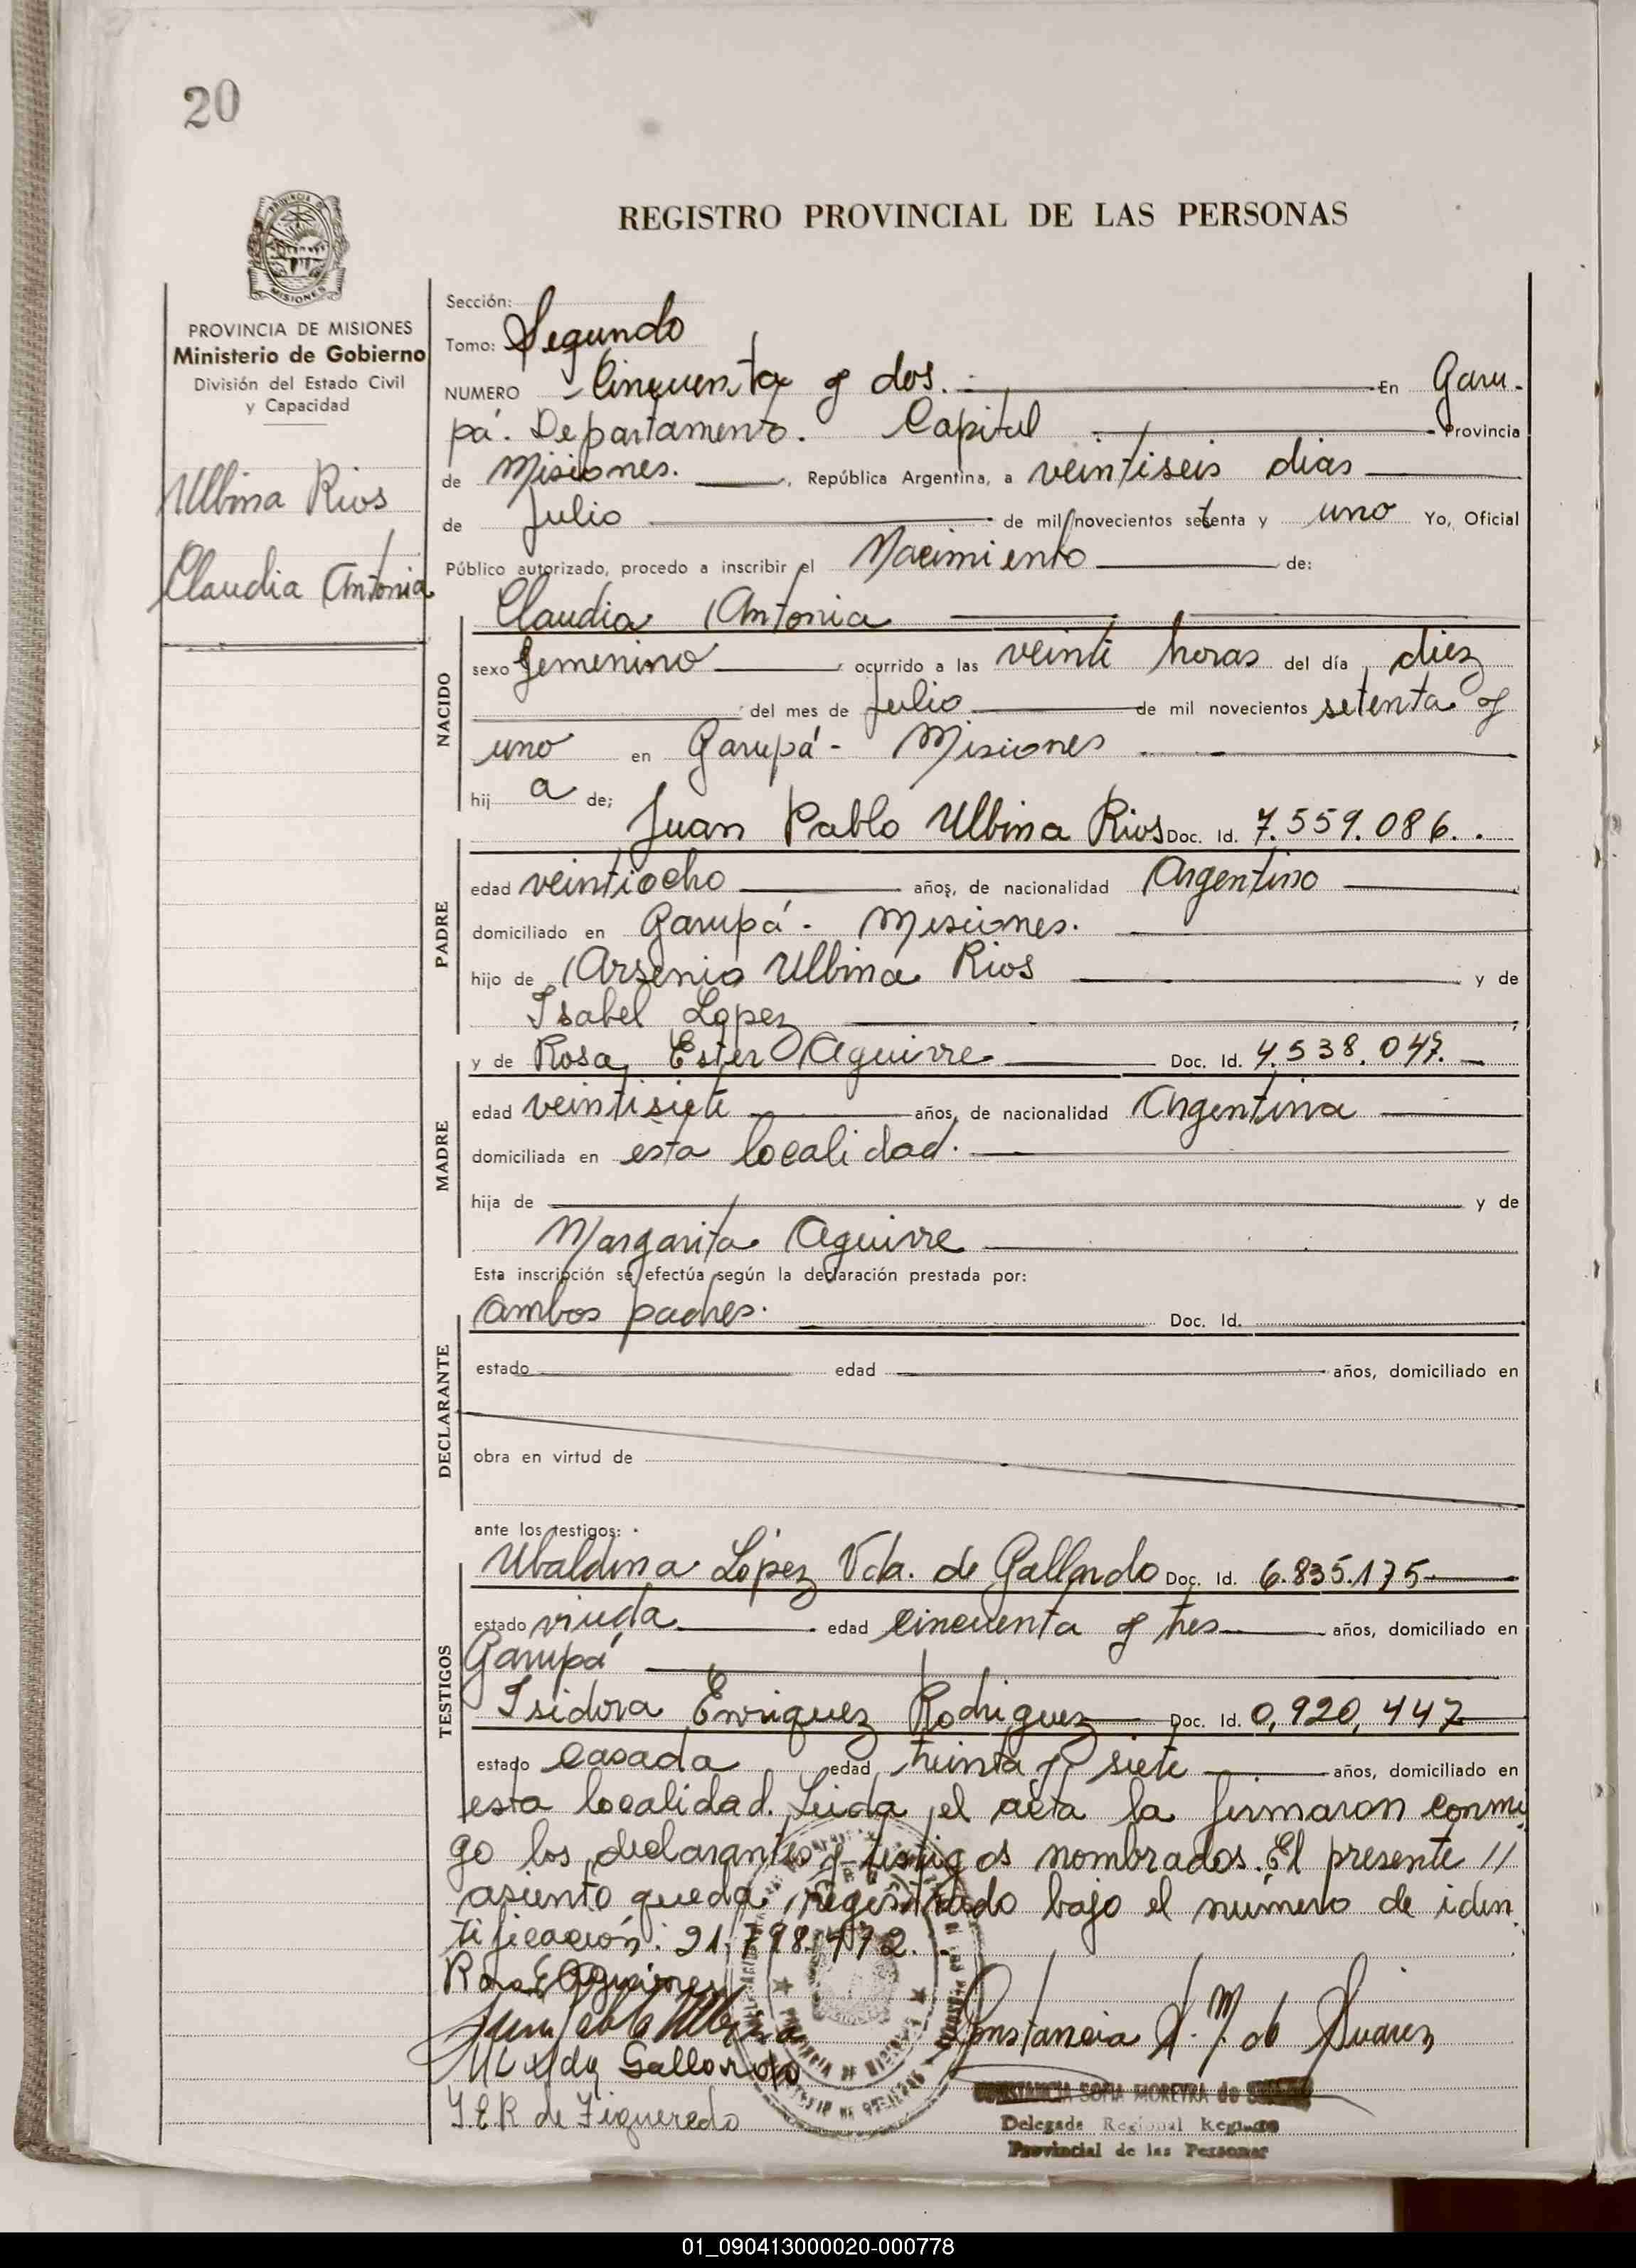 20
REGISTRO PROVINCIAL DE LAS PERSONAS
PROVINCIA DE MISIONES
Ministerio de Gobierno
División del Estado Civil
y Capacidad
Ulbina Rios
Claudia Antonia
Sección:
Tomo: Segundo
NUMERO Cincuenta y dos. En Garu-
pá. Departamento. Capital Provincia
de Misiones. , República Argentina, a veintiseis dias
de Julio de mil novecientos setenta y uno Yo, Oficial
Público autorizado, procedo a inscribir el Nacimiento de:
Claudia Antonia
NACIDO
sexo femenino ocurrido a las veinti horas del día diez
del mes de Julio de mil novecientos setenta y
uno en Garupá - Misiones
hij a de;
Juan Pablo Ulbina Rios Doc. Id. 7.559.086.
PADRE
edad veintiocho años, de nacionalidad Argentino
domiciliado en Garupá - Misiones.
hijo de Arsenio Ulbina Rios y de
Isabel Lopez
y de Rosa Ester Aguirre Doc. Id. 4.538.047.
MADRE
edad veintisiete años, de nacionalidad Argentina
domiciliada en esta localidad.
hija de y de
Margarita Aguirre
Esta inscripción se efectúa según la declaración prestada por:
Ambos padres. Doc. Id.
DECLARANTE
estado edad años, domiciliado en
obra en virtud de
ante los testigos:
Ubaldina López Vda. de Gallardo Doc. Id. 6.835.175
TESTIGOS
estado viuda edad cincuenta y tres años, domiciliado en
Garupá
Isidora Enriquez Rodriguez Doc. Id. 0,920,447
estado casada edad treinta y siete años, domiciliado en
esta localidad. Leida el acta la firmaron conmi
go los declarantes y testigos nombrados. El presente //
asiento queda registrado bajo el número de iden
tificación: 21.798.472.
Rosa E Aguirre
Juan Pablo Ulbina
Gallardo
I.E.R de Figueredo
Constancia S. M. de Suarez
CONSTANCIA SOFIA MOREYRA de SUAREZ
Delegada Regional Registro
Provincial de las Personas
01_090413000020-000778